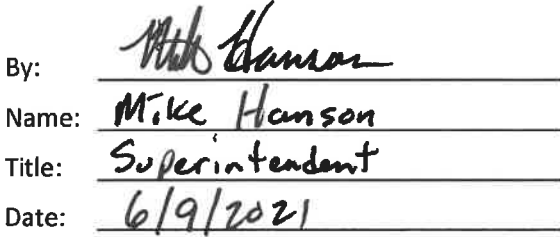 By: Mike Hanson
Name: Mike Hanson
Title: Superintendent
Date: 6/9/2021